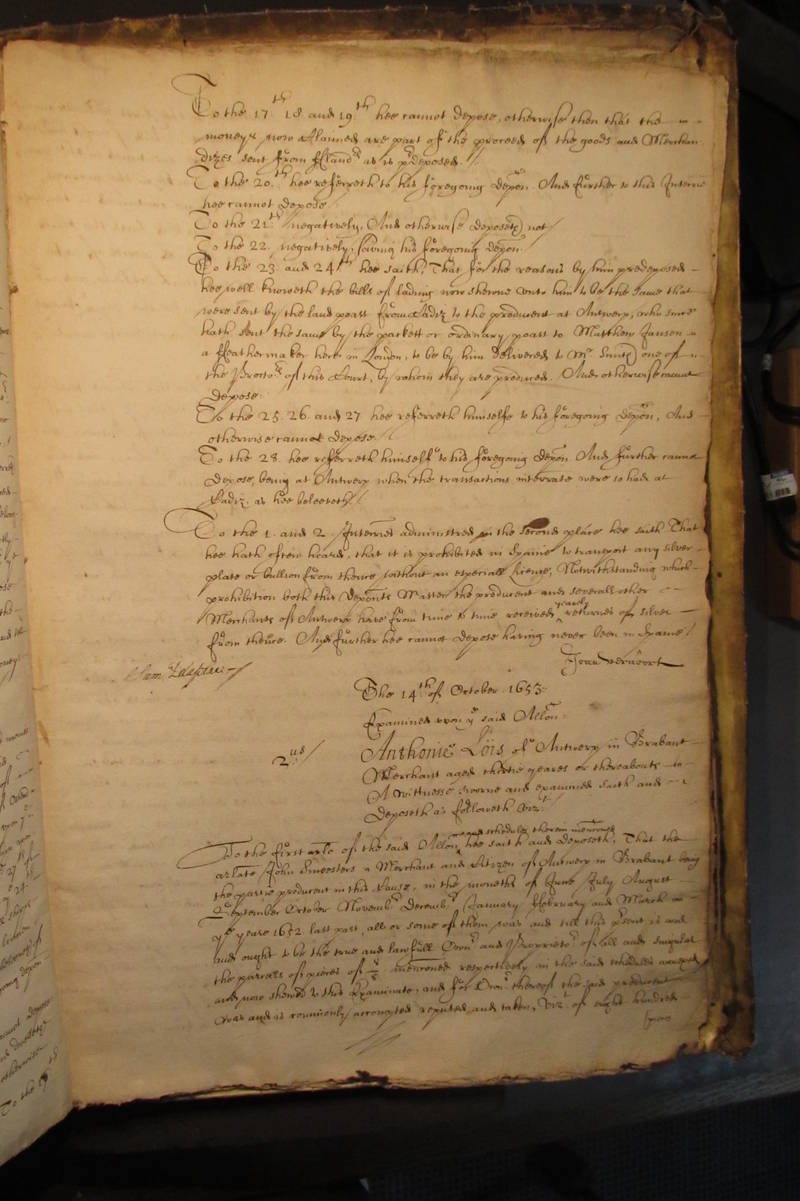 To the 17th 18 and 19th hee cannot depose, otherwise then that the
moneys now claimed are part of the proceed of the goods and Merchan
dizes sent from Fland.rs as is p.rdeposed./
To the 20.th hee referreth to his foregoing depon. And further to this Interrie
hee cannot depose
To the 21.th negatively, And otherwise deposeth not/
To the 22. negatively, saving his foregoing depon.
To the 23. and 24th hee saith, That for the reasons by him predeposed
hee well knoweth the bills of lading now showne unto him to be the same that
were sent by the land poast from Cadiz to the producent at Antwerp, who since
hath sent the same by the packett or ordinary poast to Matthew Jansen
a Feathermaker here in London, to be by him delivered to Mr. Smith one of
the Proctors of this Court, by whom they are produced. And otherwise cannot
depose.
To the 25. 26. and 27 hee referreth himselfe to his foregoing depon, And
otherwise cannot depose
To the 28. hee referreth himself to his foregoing depon And further cannot
depose, being at Antwerp when the transactions interrate were so had at
Cadiz. as hee beleeveth/
To the 1. and 2 Interries administred in the second place hee saith That
hee hath often heard, that it is prohibited in Spaine to transport any silver
plate or bullion from thence without an especiall licence, Notwithstanding which
prohibition both this deponts Master the producent and severall other
Merchants of Antwerp have from time to time received yearly returnes of silver
from thence. And further hee cannot depose having never been in Spaine/
Joan
The 14th of October 1653.
Examined upon ye said Allon.
2.us/
Anthonie Lois of Antwerp in Brabant
Merchant aged thirtie yeares or thereabouts
A wittnesse sworne and examined saith and
deposeth as followeth viz.t
To the first arle of the said Allon and schedules therein mentioned hee saith and deposeth, That the
arlate John a Merchant and Citizen of Antwerp in Brabant being
the partie producent in this Cause, in the moneths of June July August
September October Novemb.r Decemb.r January February and March in
ye yeare 1652. last past, all or some of them was and till this p.rsent is and
and ought to be the true and lawfull Own.r and Propriet.r of all and singular
the parcells of pieces of 8/8 mentioned respectively in the said schedules annexed
and now shewed to this Examinate, and for Own.r thereof the said producent
was and is commonly accompted reputed and taken, viz.t of eight hundred